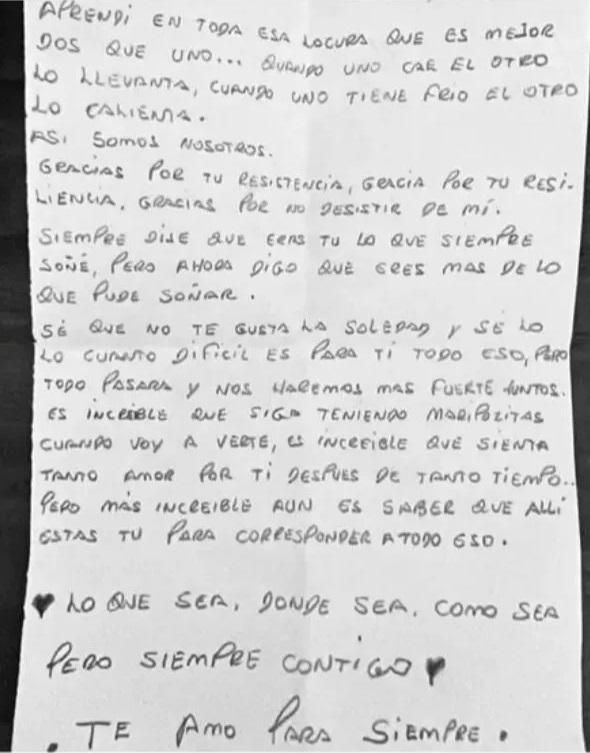 APRENDI EN TODA ESA LOCURA QUE ES MEJOR
DOS QUE UNO... QUANDO UNO CAE EL OTRO
LO LLEVANTA, CUANDO UNO TIENE FRIO EL OTRO
LO CALIENTA.
ASI SOMOS NOSOTROS.
GRACIAS POR TU RESISTENCIA, GRACIA POR TU RESI-
LIENCIA, GRACIAS POR NO DESISTIR DE MÍ.
SIEMPRE DIJE QUE ERAS TU LO QUE SIEMPRE
SOÑÉ, PERO AHORA DIGO QUE ERES MAS DE LO
QUE PUDE SOÑAR.
SÉ QUE NO TE GUSTA LA SOLEDAD Y SÉ LO
LO CUANTO DIFICIL ES PARA TI TODO ESO, PERO
TODO PASARA Y NOS HAREMOS MAS FUERTE JUNTOS.
ES INCREIBLE QUE SIGA TENIENDO MARIPOZITAS
CUANDO VOY A VERTE, ES INCREIBLE QUE SIENTA
TANTO AMOR POR TI DESPUES DE TANTO TIEMPO..
PERO MÁS INCREIBLE AUN ES SABER QUE ALLI
ESTAS TU PARA CORRESPONDER A TODO ESO.
♥ LO QUE SEA, DONDE SEA, COMO SEA
PERO SIEMPRE CONTIGO ♥
. TE AMO PARA SIEMPRE.